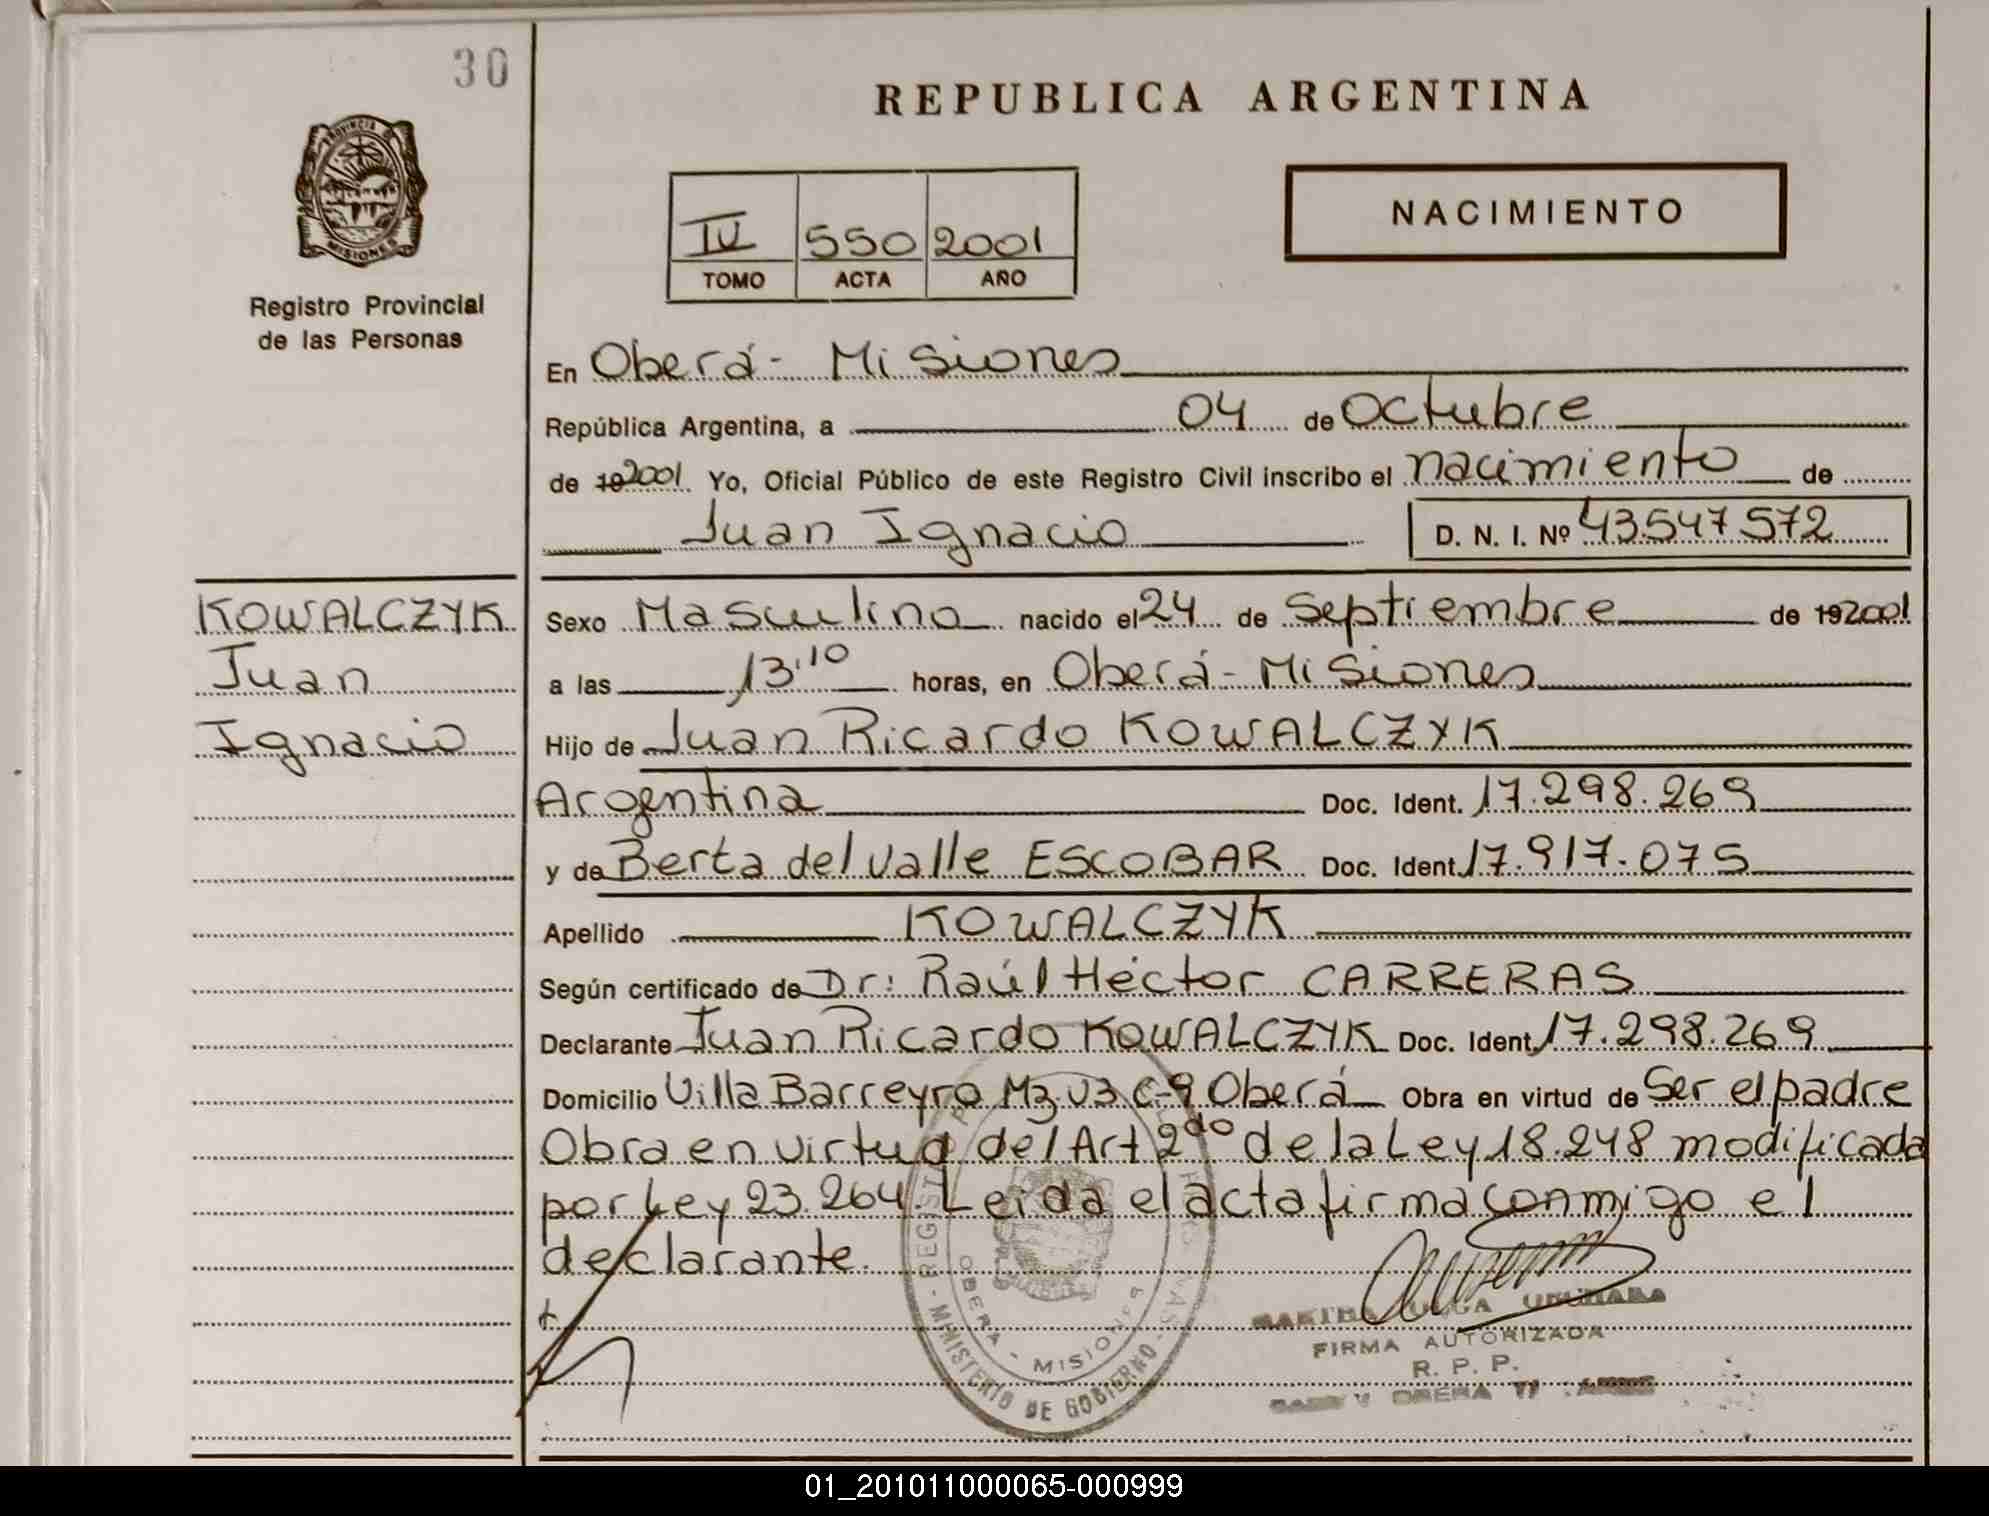 30
REPUBLICA ARGENTINA
PROVINCIA DE
MISIONES
Registro Provincial
de las Personas
IV 550 2001
TOMO ACTA AÑO
NACIMIENTO
En Oberá - Misiones
República Argentina, a 04 de Octubre
de 19 2001 Yo, Oficial Público de este Registro Civil inscribo el nacimiento de
Juan Ignacio D. N. I. Nº 43547572
KOWALCZYK
Juan
Ignacio
Sexo Masculino nacido el 24 de Septiembre de 19 2001
a las 13:10 horas, en Oberá - Misiones
Hijo de Juan Ricardo KOWALCZYK
Argentina Doc. Ident. 17.298.269
y de Berta del Valle ESCOBAR Doc. Ident. 17.917.075
Apellido KOWALCZYK
Según certificado de Dr: Raúl Héctor CARRERAS
Declarante Juan Ricardo KOWALCZYK Doc. Ident. 17.298.269
Domicilio Villa Barreyro Mz. V3 C-9 Oberá Obra en virtud de Ser el padre
Obra en virtud del Art 2do de la Ley 18.248 modificada
por Ley 23.264. Leida el acta firma conmigo el
declarante.
OBERA - MISIONES
MINISTERIO DE GOBIERNO
FIRMA AUTORIZADA
R. P. P.
01_201011000065-000999